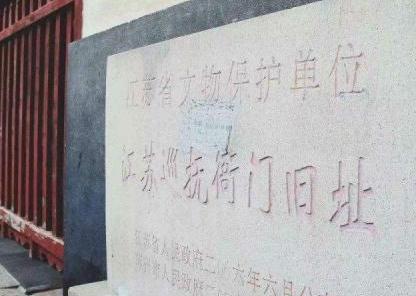 江苏省文物保护单位
江苏巡抚衙门旧址
江苏省人民政府二〇〇六年六月公
省人民政府二